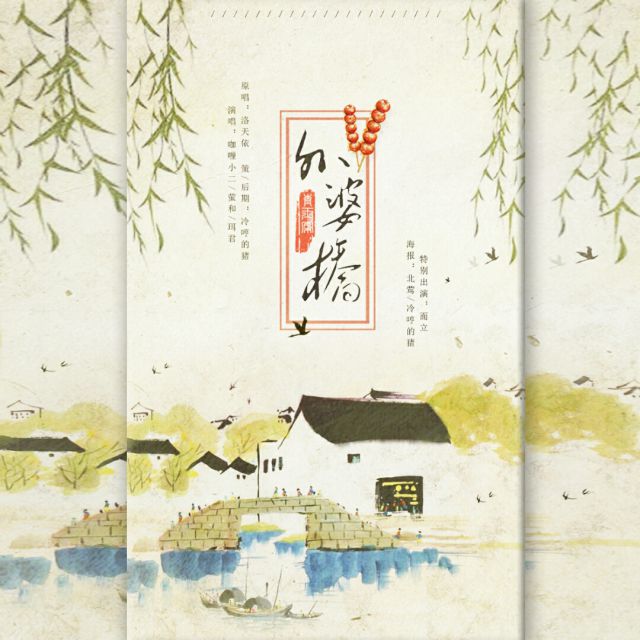 外婆桥
原唱：洛天依　策/后期：冷哼的猪
演唱：咖喱小二/萤和/珥君
特别出演：而立
海报：北莺/冷哼的猪